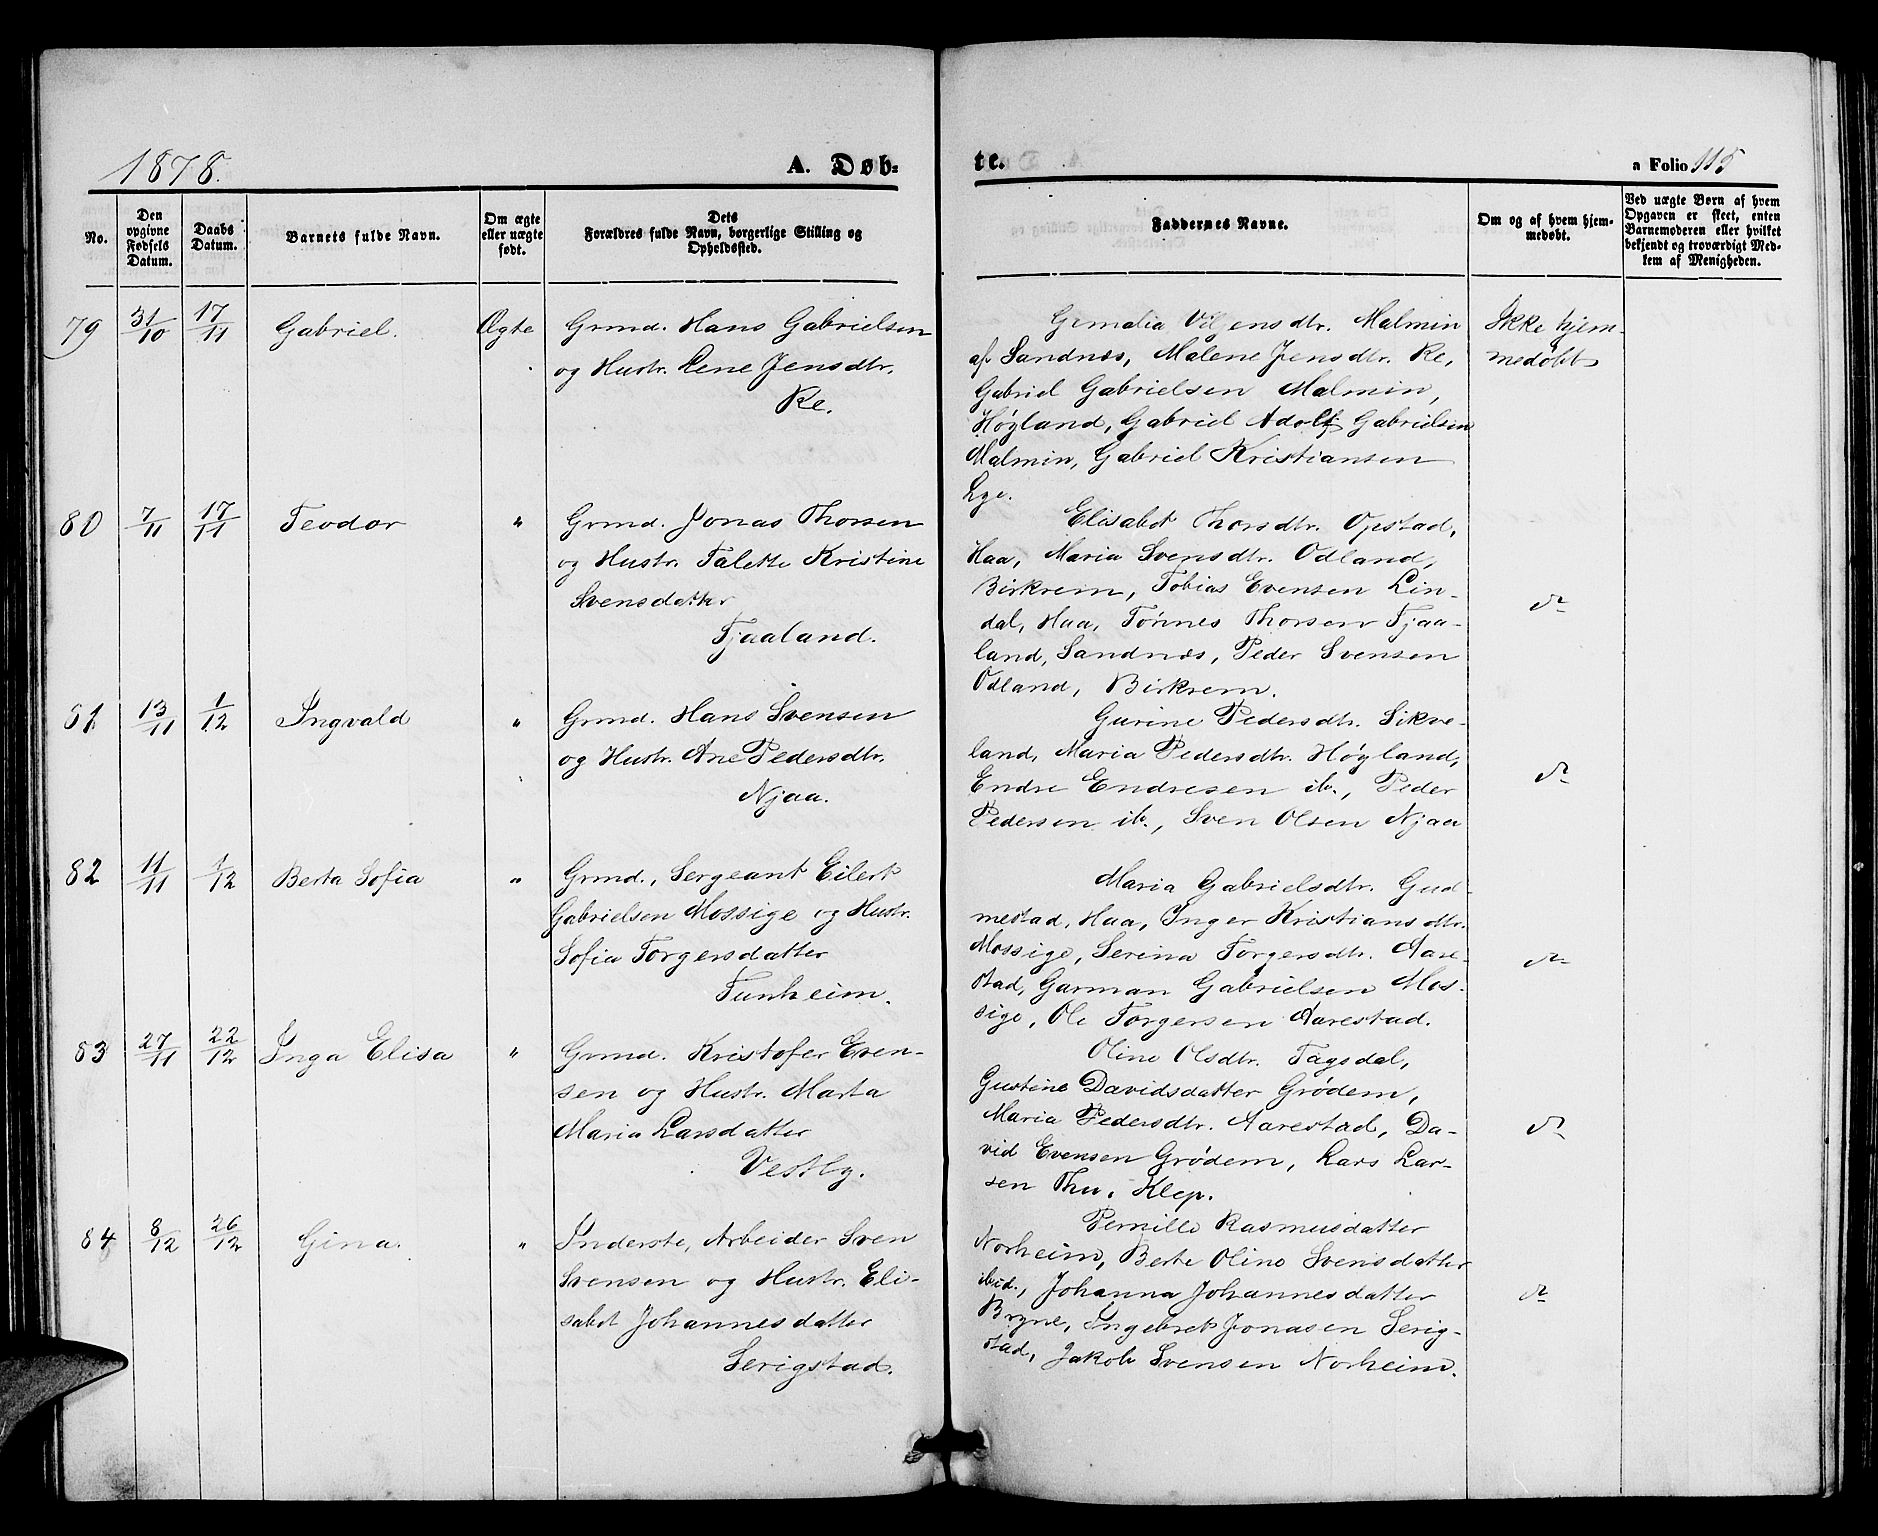 1878.
A. Døb-
te.
a Folio 115
No.
Den opgivne Fødsels Datum.
Daabs Datum.
Barnets fulde Navn.
Om ægte eller uægte født.
Dets Forældres fulde Navn, borgerlige Stilling og Opholdssted.
Faddernes Navne.
Om og af hvem hjem-
medøbt.
Ved uægte Børn af hvem Opgaven er skeet, enten Barnemoderen eller hvilket bekjendt og troværdigt Med-
lem af Menigheden.
79
31/10
17/11
Gabriel.
Ægte
Grmd. Hans Gabrielsen
og Hustr. Lene Jensdtr.
Re.
Malmin
af Sandnæs, Malene Jensdtr. Re,
Gabriel Gabrielsen Malmin,
Høyland, Gabriel Adolf Gabrielsen
Malmin, Gabriel Kristiansen
Lye.
Ikke hjem-
medøbt
80
7/11
17/11
Teodor
"
Grmd. Jonas Thorsen
og Hustr. Talette Kristine
Svensdatter
Tjaaland.
Elisabet Thorsdtr. Opstad,
Haa, Maria Svensdtr. Odland,
Birkrem, Tobias Evensen Lin-
dal, Haa, Tønnes Thorsen Tjaa-
land, Sandnæs, Peder Svensen
Odland, Birkrem.
do
81
13/11
1/12
Ingvald
"
Grmd. Hans Svensen
og Hustr. Ane Pedersdtr.
Njaa.
Gurine Pedersdtr. Sikve-
land, Maria Pedersdtr. Høyland,
Endre Endresen ib., Peder
Pedersen ib., Sven Olsen Njaa
do
82
11/11
1/12
Berta Sofia
"
Grmd., Sergeant Eilert
Gabrielsen Mossige og Hustr.
Sofia Torgersdatter
Tunheim.
Maria Gabrielsdtr. Gud-
mestad, Haa, Inger Kristiansdtr.
Mossige, Serina Torgersdtr. Aare-
stad, Garman Gabrielsen Mos-
sige, Ole Torgersen Aarestad.
do
83
27/11
22/12
Inga Elisa
"
Grmd. Kristofer Even-
sen og Hustr. Marta
Maria Larsdatter
Vestly.
Oline Olsdtr. Tagsdal,
Gustine Davidsdatter Grødem,
Maria Pedersdtr. Aarestad, Da-
vid Evensen Grødem, Lars Lar-
sen Thu, Klep.
do
84
8/12
26/12
Gina.
"
Inderste, Arbeider Sven
Svensen og Hustr. Eli-
sabet Johannesdatter
Serigstad.
Pernille Rasmusdatter
Norheim, Berte Oline Svensdatter
ibid., Johanna Johannesdatter
Bryne, Ingebret Jonasen Serig-
stad, Jakob Svensen Norheim.
do